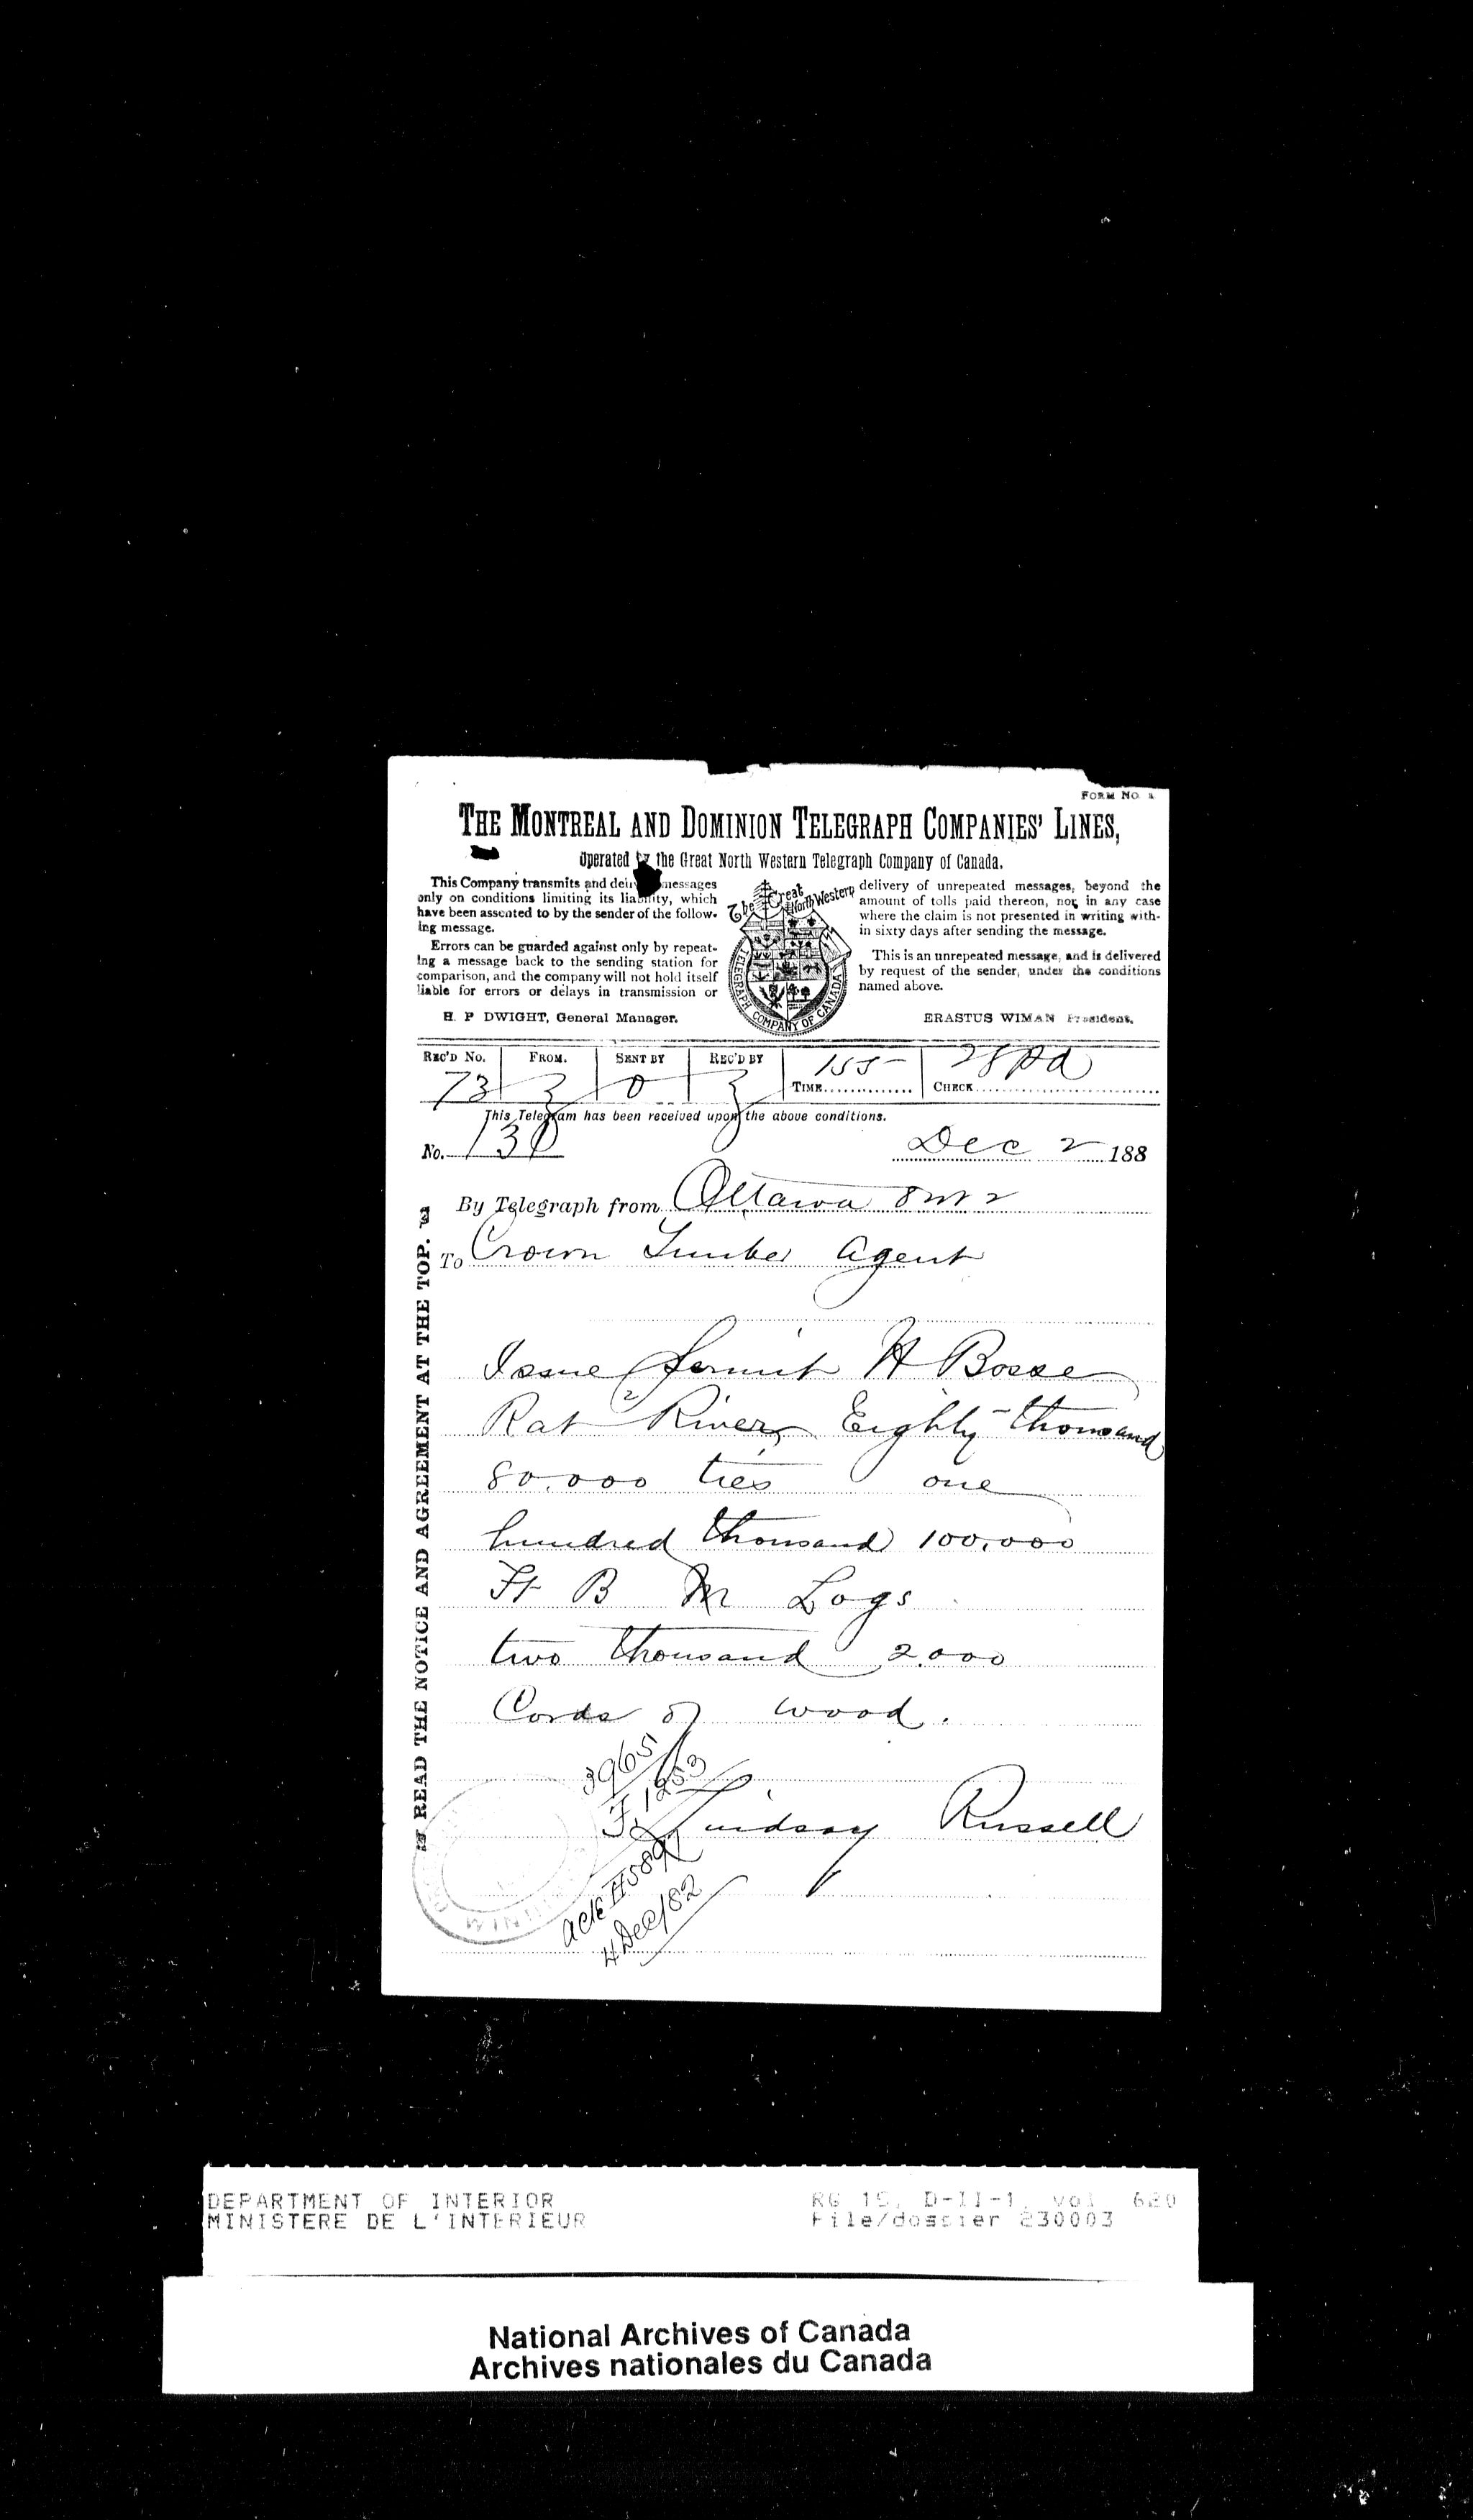 FORM NO. 1
THE MONTREAL AND DOMINION TELEGRAPH COMPANIES' LINES,
Operated by the Great North Western Telegraph Company of Canada.
This Company transmits and messages
only on conditions limiting its liability, which
have been assented to by the sender of the follow-
ing message.
Errors can be guarded against only by repeat-
ing a message back to the sending station for
comparison, and the company will not hold itself
liable for errors or delays in transmission or
H. P DWIGHT, General Manager.
The Great North Western
TELEGRAPH COMPANY OF CANADA
delivery of unrepeated messages, beyond the
amount of tolls paid thereon, nor in any case
where the claim is not presented in writing with-
in sixty days after sending the message.
This is an unrepeated message, and is delivered
by request of the sender, under the conditions
named above.
ERASTUS WIMAN President.
REC'D No. FROM. SENT BY REC'D BY 155 28 Pd
73 TIME CHECK
This Telegram has been received upon the above conditions.
No. 130 Dec 2 188
By Telegraph from Ottawa 2
To Crown Timber Agent
Issue Permit H Bosse
Rat River Eighty thousand
80.000 ties one
hundred thousand 100,000
Ft B M Logs
two thousand 2.000
Cords of wood.
Lindsay Russell
39651
F. 1253
ack H589
4 Dec/82
READ THE NOTICE AND AGREEMENT AT THE TOP.
DEPARTMENT OF INTERIOR RG 15, D-II-1, vol 620
MINISTERE DE L'INTERIEUR File/dossier 230003
National Archives of Canada
Archives nationales du Canada